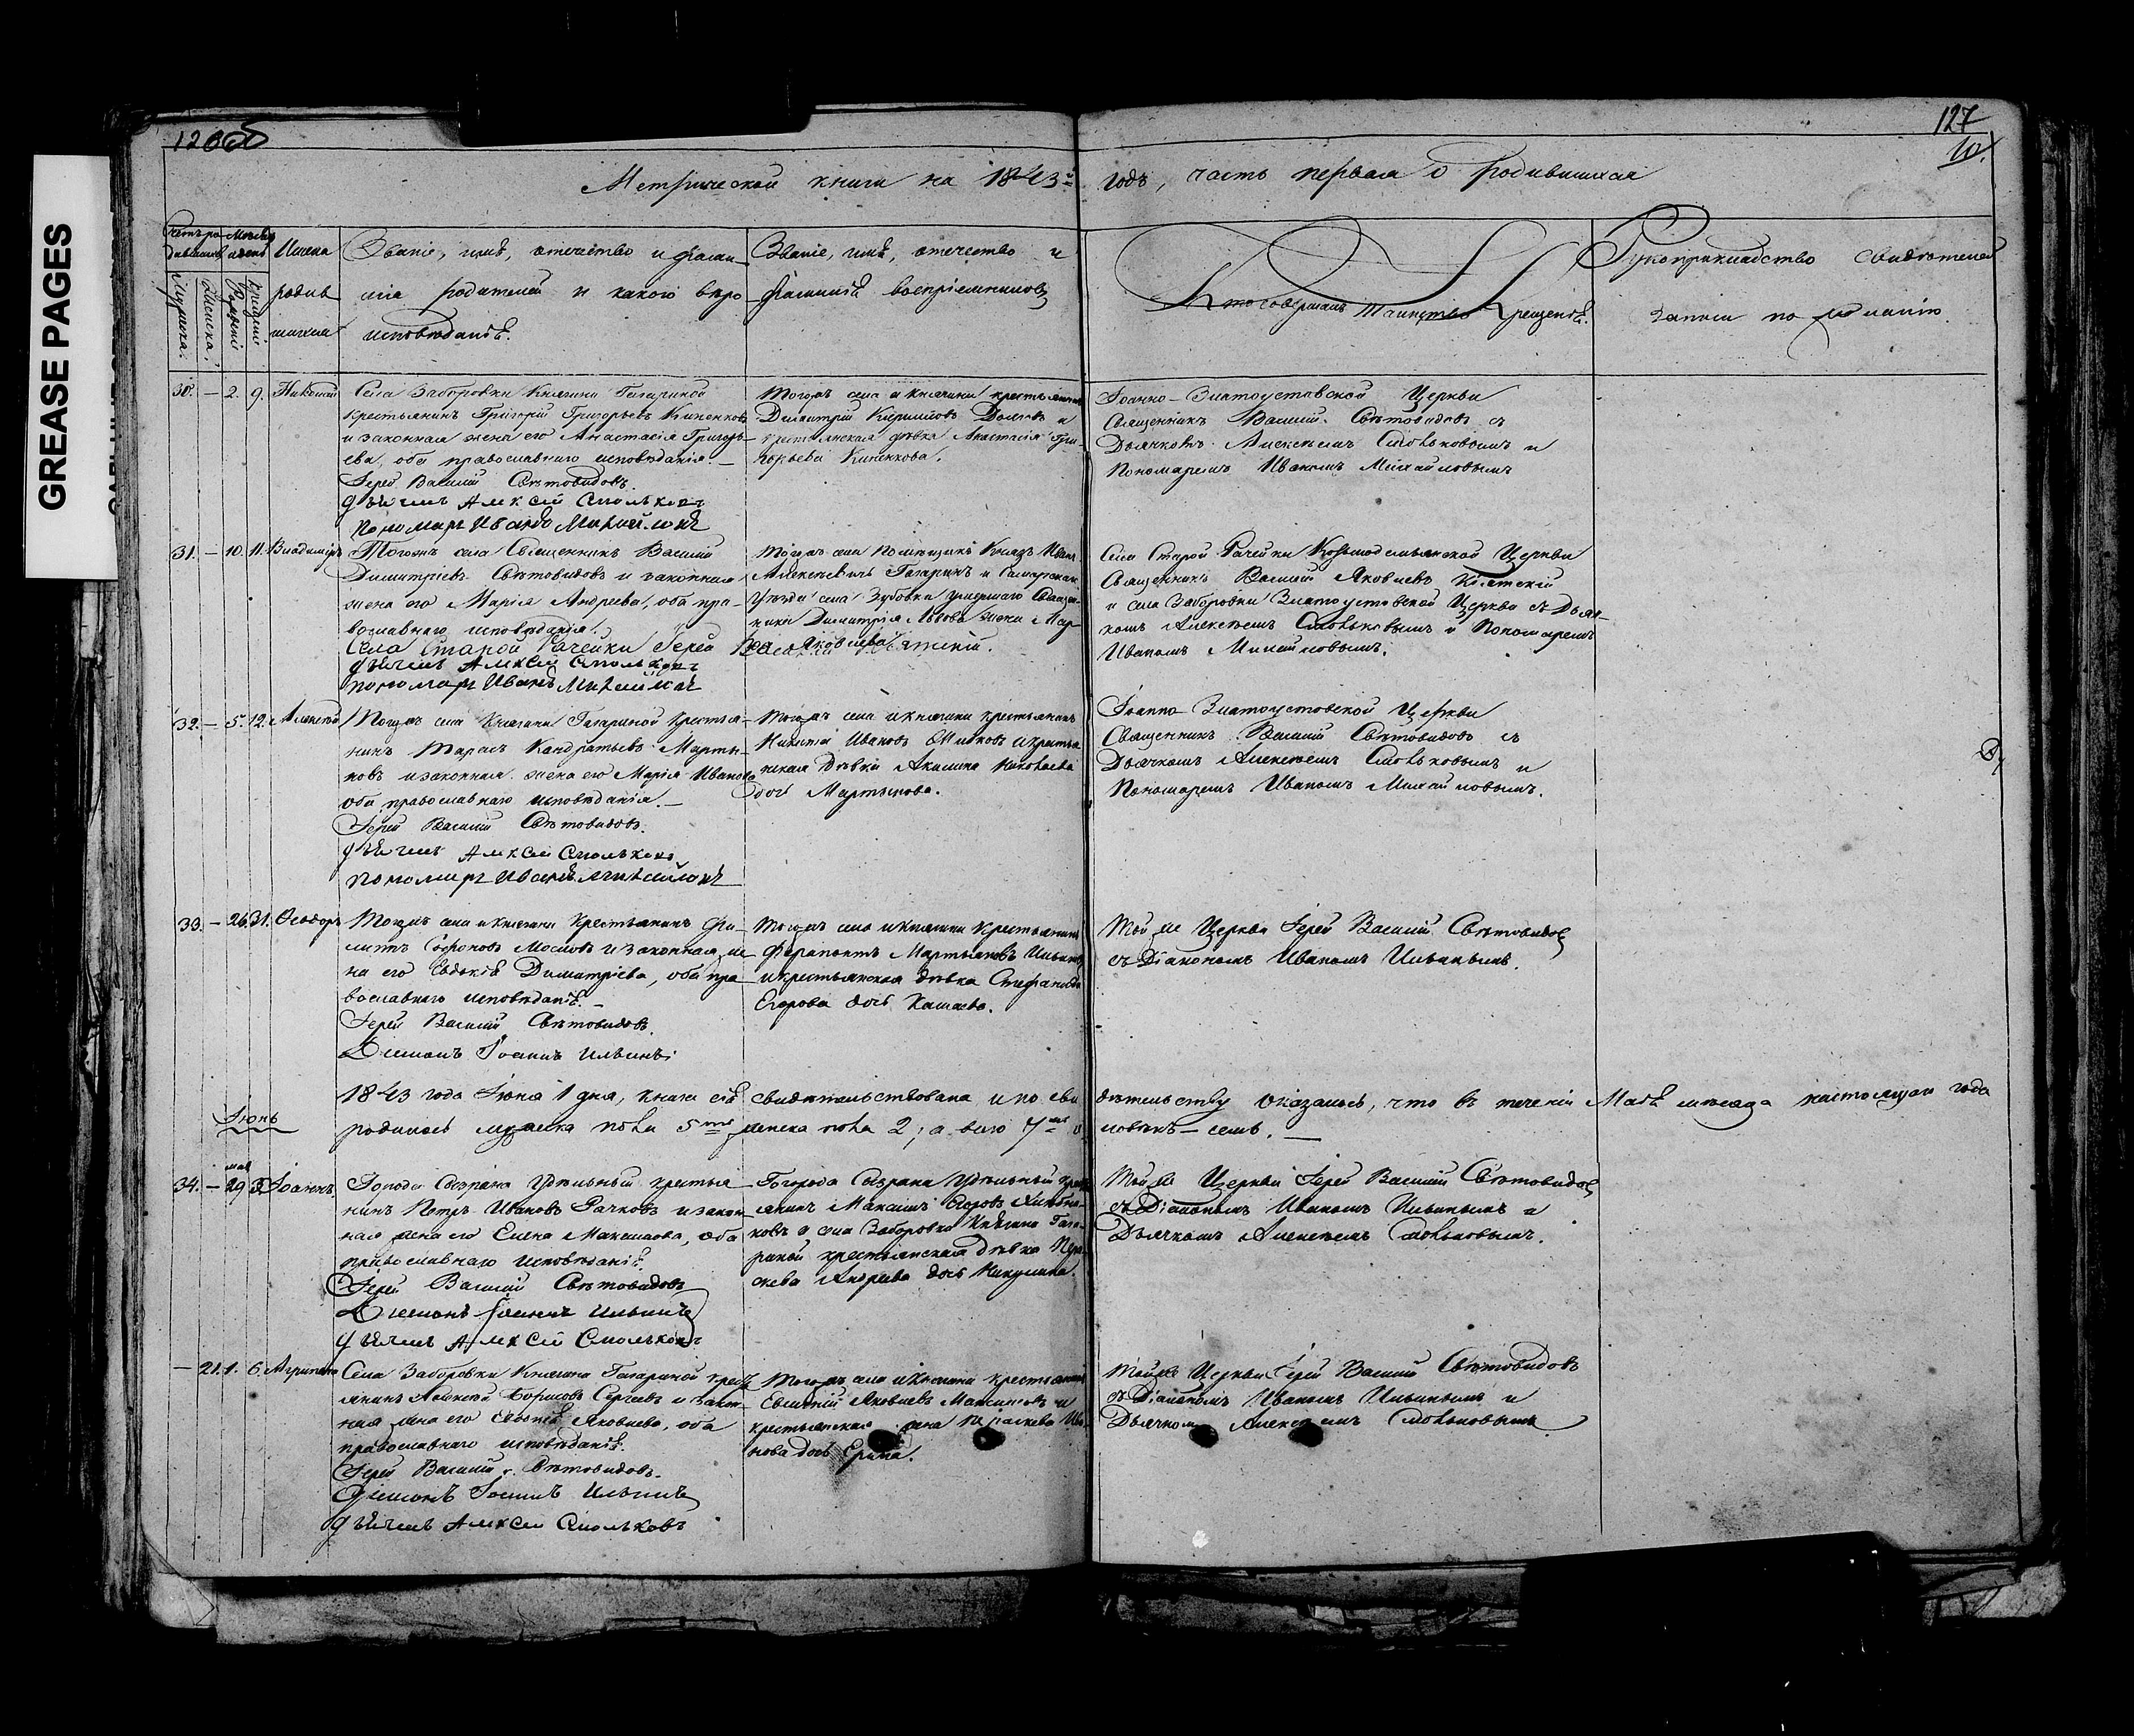 GREASE PAGES
126об
127
10.
Метрической книги на 1843й годъ, часть первая о родившихся
Счетъ родившихся
Мѣсяцъ и день
Имена родившихся
Званіе, имя, отчество и фами-
лія родителей и какого вѣро
исповѣданія.
Званіе, имя, отчество и
фамилія воспріемниковъ
Кто совершалъ таинство крещенія.
Рукоприкладство свидѣтелей
записи по желанію
Мужеска.
Женска.
Рожденіе
Крещеніе
30. — 2. 9. Николай
Села Заборовки Княгини Гагариной
крестьянинъ Григорій Григорьевъ
и законная жена его Анастасія Григорь-
ева, оба православнаго исповѣданія. —
Іерей Василій Свѣтовидовъ.
Дьячекъ Алексѣй Смольковъ
Пономарь Иванъ Михайловъ
Тогожъ села и княгини крестьянинъ
Димитрій Кирилловъ и
крестьянская дѣвка Анастасія Гри-
горьева
Іоанно-Златоустовской Церкви
Священникъ Василій Свѣтовидовъ съ
Дьячкомъ Алексѣемъ Смольковымъ и
Пономаремъ Иваномъ Михайловымъ
31. — 10. 11. Владиміръ
Тогожъ села Священникъ Василій
Димитріевъ Свѣтовидовъ и законная
жена его Марія Андреева, оба пра-
вославнаго исповѣданія.
Села Старой Рачейки Іерей Василій
Дьячекъ Алексѣй Смольковъ
Пономарь Иванъ Михайловъ
Тогожъ села помѣщикъ Князь Иванъ
Алексѣевичь Гагаринъ и Самарскаго
Уѣзда села Зубовки умершаго Священ-
ника Димитрія Львова жена Мар-
Яковлева
Села Старой Рачейки Козьмодемьянской Церкви
Священникъ Василій Яковлевъ
и села Заборовки Златоустовской Церкви съ Дьяч-
комъ Алексѣемъ Смольковымъ и Пономаремъ
Иваномъ Михайловымъ.
32. — 5. 12. Алексѣй
Тогожъ села Княгини Гагариной крестья-
нинъ Тарасъ Кандратьевъ Марты-
новъ и законная жена его Марія Иванова
оба православнаго исповѣданія. —
Іерей Василій Свѣтовидовъ.
Дьячекъ Алексѣй Смольковъ
Пономарь Иванъ Михайловъ
Тогожъ села и княгини крестьянинъ
Никита Ивановъ и крестьян-
ская дѣвка Акилина Николаева
дочь Мартынова.
Іоанно-Златоустовской Церкви
Священникъ Василій Свѣтовидовъ съ
Дьячкомъ Алексѣемъ Смольковымъ и
Пономаремъ Иваномъ Михайловымъ.
33. — 26. 31. Ѳеодоръ
Тогожъ села и Княгини крестьянинъ Фи-
липъ Софроновъ Масловъ и законная же-
на его Евдокія Димитріева, оба пра-
вославнаго исповѣданія. —
Іерей Василій Свѣтовидовъ.
Діаконъ Іоаннъ Ильинъ
Тогожъ села и княгини крестьянинъ
Ферапонтъ Мартыновъ Ильинъ
и крестьянская дѣвка Стефанида
Егорова дочь Кашаева.
Той же Церкви Іерей Василій Свѣтовидовъ
съ Діакономъ Иваномъ Ильинымъ.
1843 года Іюня 1 дня, книга сія свидѣтельствована и по сви дѣтельству оказалось, что въ теченіи Маія мѣсяца настоящаго года
Іюнь
родилось мужеска пола 5ть женска пола 2; а всего 7мь че ловѣкъ — семь. —
34. — мая 29 3. Іоаннъ
Города Сызрана Удѣльный крестья-
нинъ Петръ Ивановъ Рачковъ и закон-
ная жена его Елена Максимова, оба
православнаго исповѣданія.
Іерей Василій Свѣтовидовъ
Діаконъ Іоаннъ Ильинъ
Дьячекъ Алексѣй Смольковъ
Города Сызрана Удѣльный
Максимъ Егоровъ
и села Заборовки Княгини Гага-
риной крестьянская дѣвка
Андреева дочь Никулина.
Той же Церкви Іерей Василій Свѣтовидовъ
съ Діакономъ Иваномъ Ильинымъ и
Дьячкомъ Алексѣемъ Смольковымъ.
— 21. 1. 6. Агрипина
Села Заборовки Княгини Гагариной кресть-
янинъ Алексѣй Борисовъ Сергѣевъ и закон-
ная жена его Яковлева, оба
православнаго исповѣданія.
Іерей Василій Свѣтовидовъ.
Діаконъ Іоаннъ Ильинъ
Дьячекъ Алексѣй Смольковъ
Тогожъ села и Княгини крестьянинъ
Евсигній Яковлевъ Максимовъ и
крестьянская жена Параскева Ива-
нова дочь Ерина.
Той же Церкви Іерей Василій Свѣтовидовъ
съ Діакономъ Иваномъ Ильинымъ и
Дьячкомъ Алексѣемъ Смольковымъ